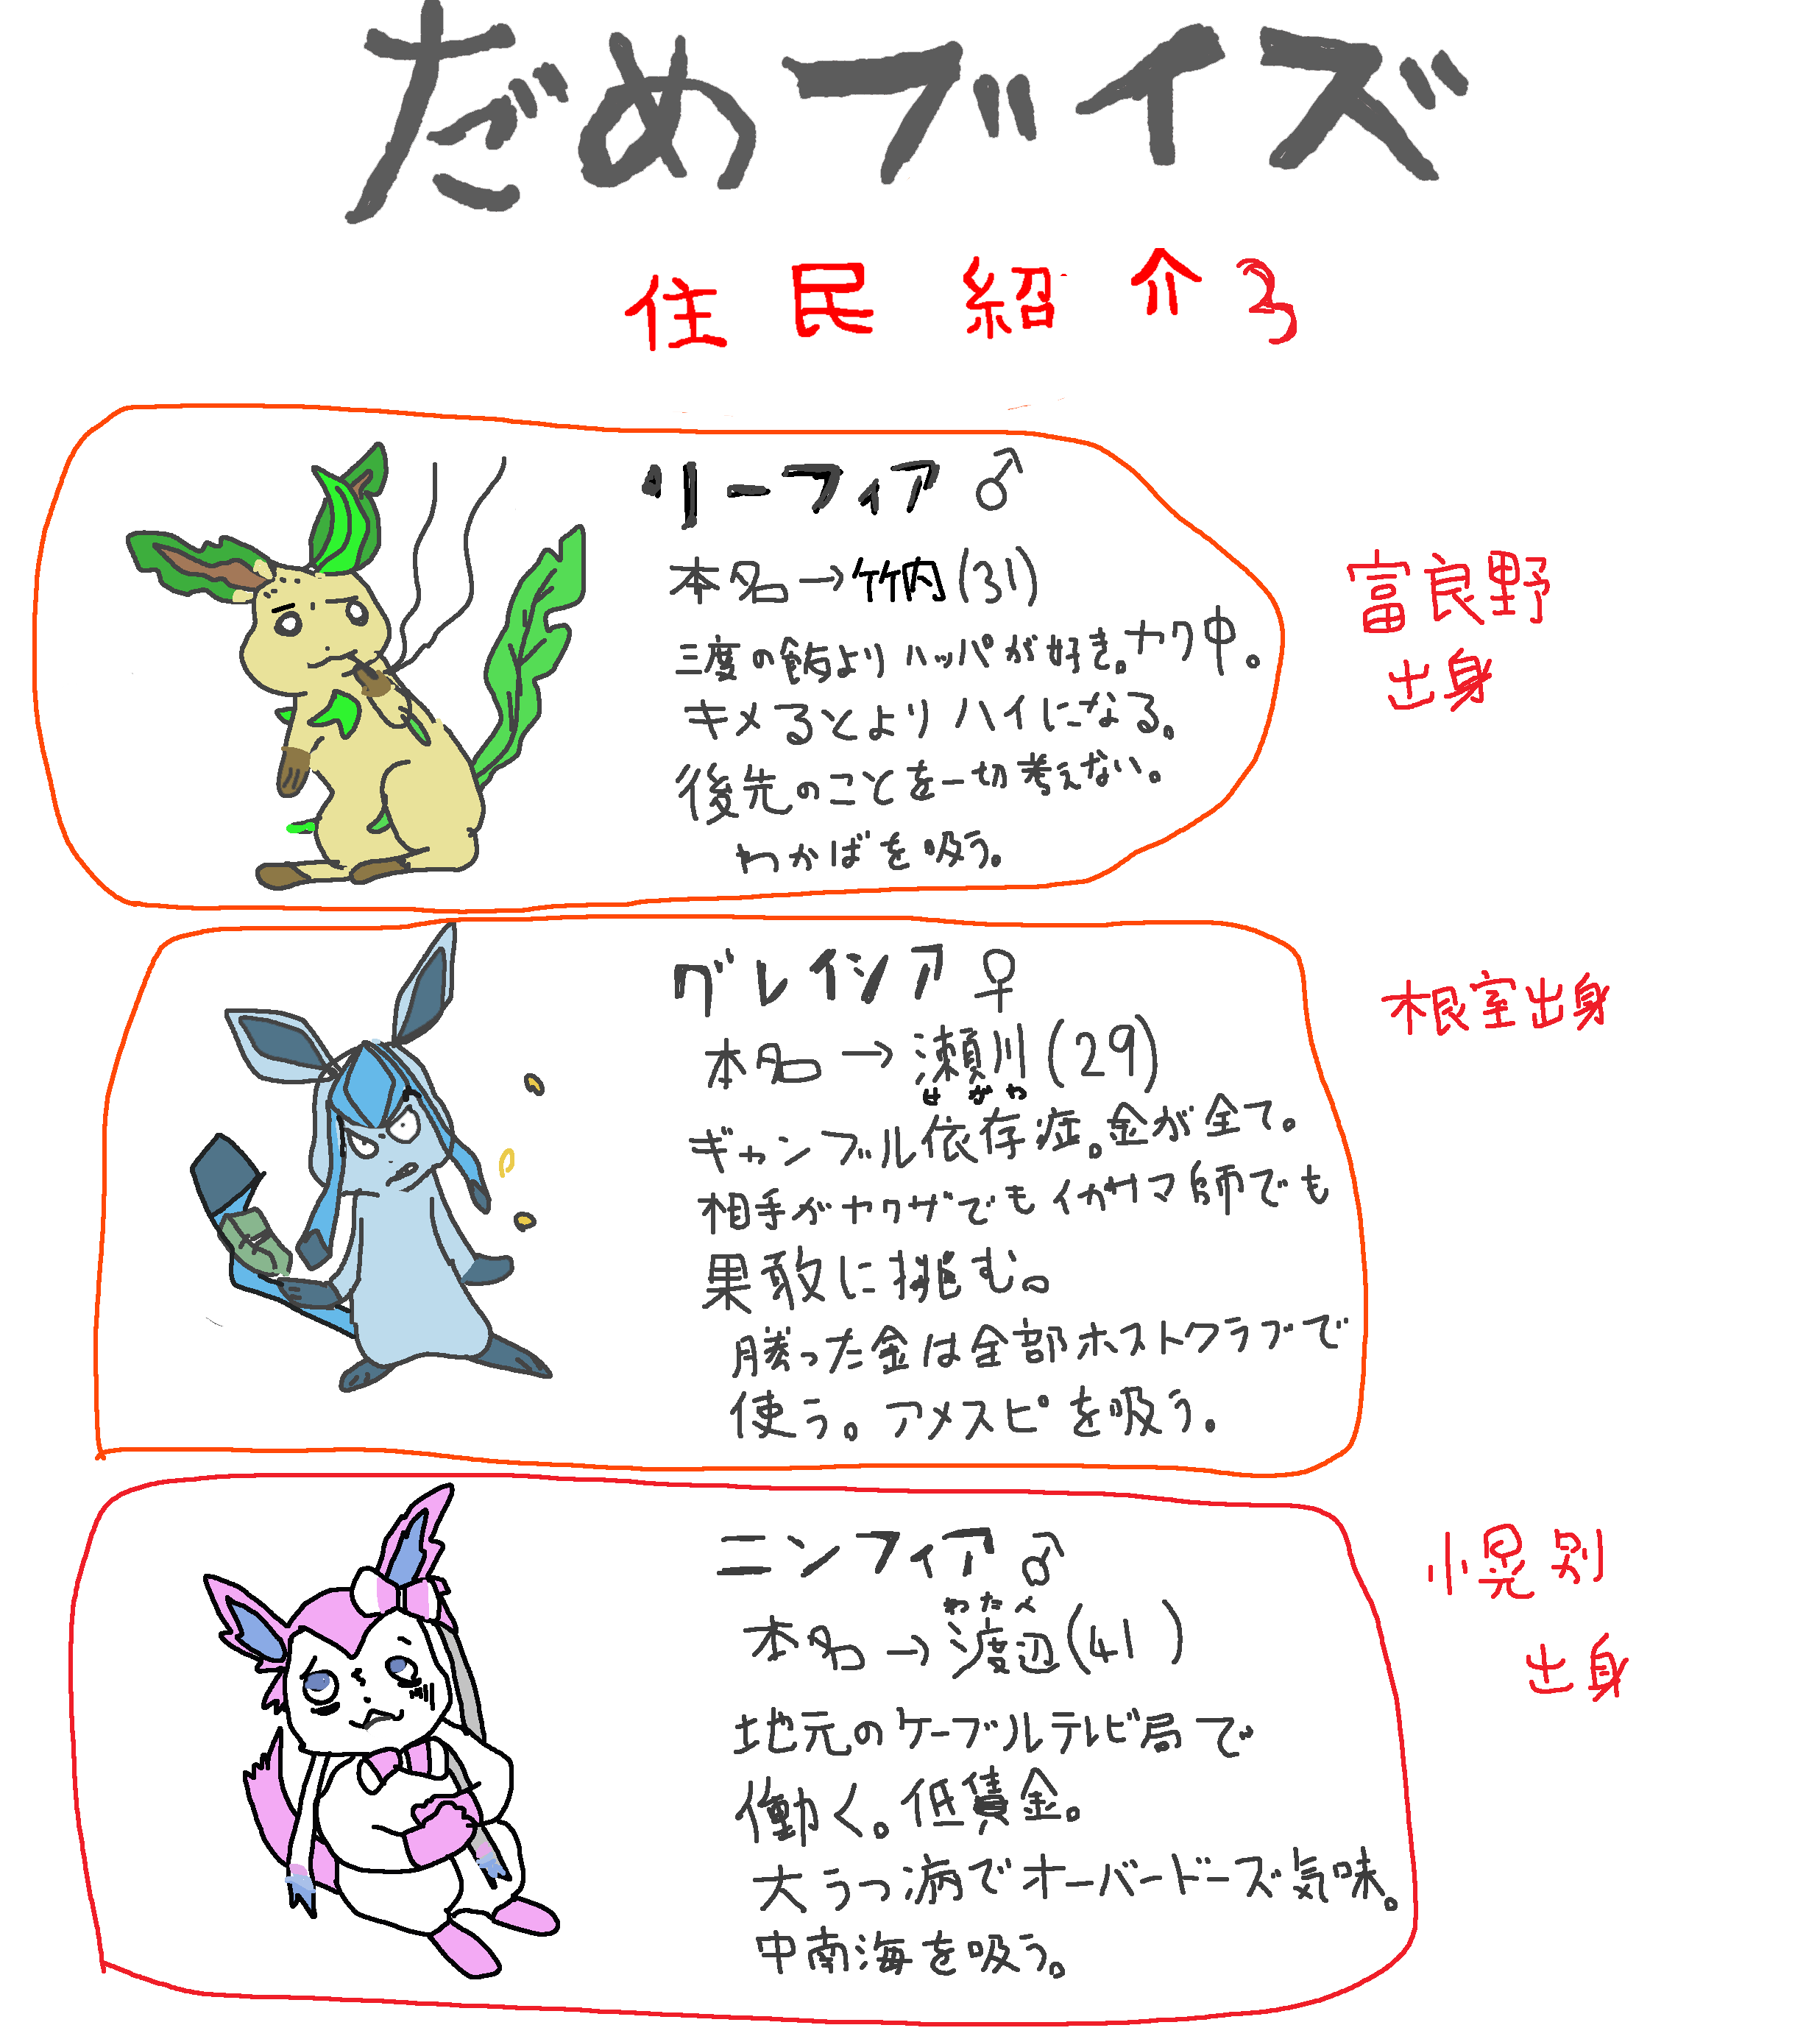 だめブイズ
住民紹介3
リーフィア♂
本名→竹内(31)
三度の飯よりハッパが好き。ヤク中。
キメるとよりハイになる。
後先のことを一切考えない。
わかばを吸う。
富良野
出身
グレイシア♀
本名→瀬川(29)
せがわ
ギャンブル依存症。金が全て。
相手がヤクザでもイカサマ師でも
果敢に挑む。
勝った金は全部ホストクラブで
使う。アメスピを吸う。
根室出身
ニンフィア♂
わたべ
本名→渡辺(41)
地元のケーブルテレビ局で
働く。低賃金。
大うつ病でオーバードーズ気味。
中南海を吸う。
小幌別
出身